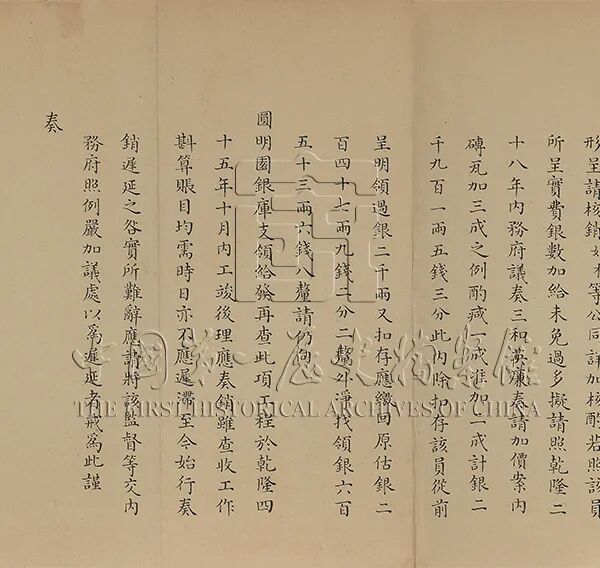 形呈請核銷奴才等公同詳加核酌若照該員
所呈實費銀數加給未免過多擬請照乾隆二
十八年內務府議奏三和英廉奏請加價案內
磚瓦加三成之例酌減二成准加一成計銀二
千九百一兩五錢三分此內除扣存該員從前
呈明領過銀二千兩又扣存應繳回原估銀二
百四十七兩九錢二分二釐外淨找領銀六百
五十三兩六錢八釐請仍向
圓明園銀庫支領給發再查此項工程於乾隆四
十五年十月內工竣後理應奏銷雖查收工作
斟算賬目均需時日亦不應遲滯至今始行奏
銷遲延之咎實所難辭應請將該監督等交內
務府照例嚴加議處以為遲延者戒為此謹
奏
中國第一歷史檔案館
THE FIRST HISTORICAL ARCHIVES OF CHINA